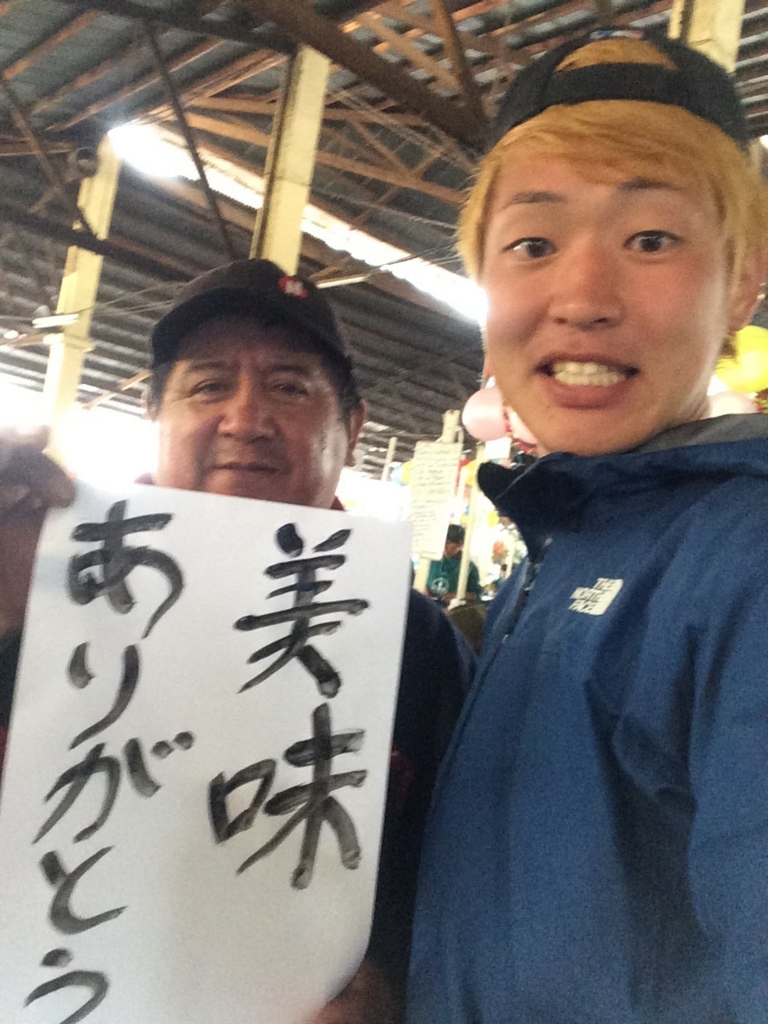 美味
ありがとう
THE
NORTH
FACE